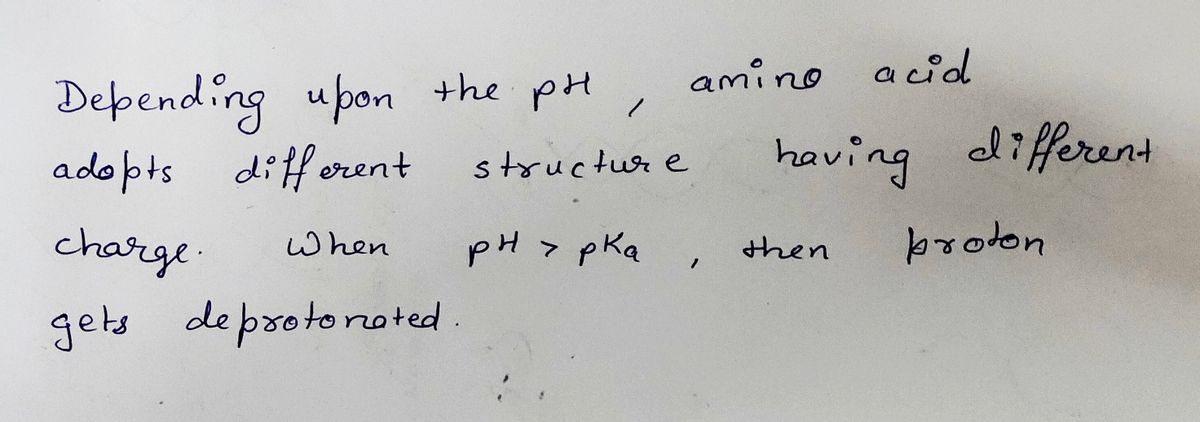 Depending upon the pH, amino acid
adopts different structure having different
charge. When pH > pKa, then proton
gets deprotonated.